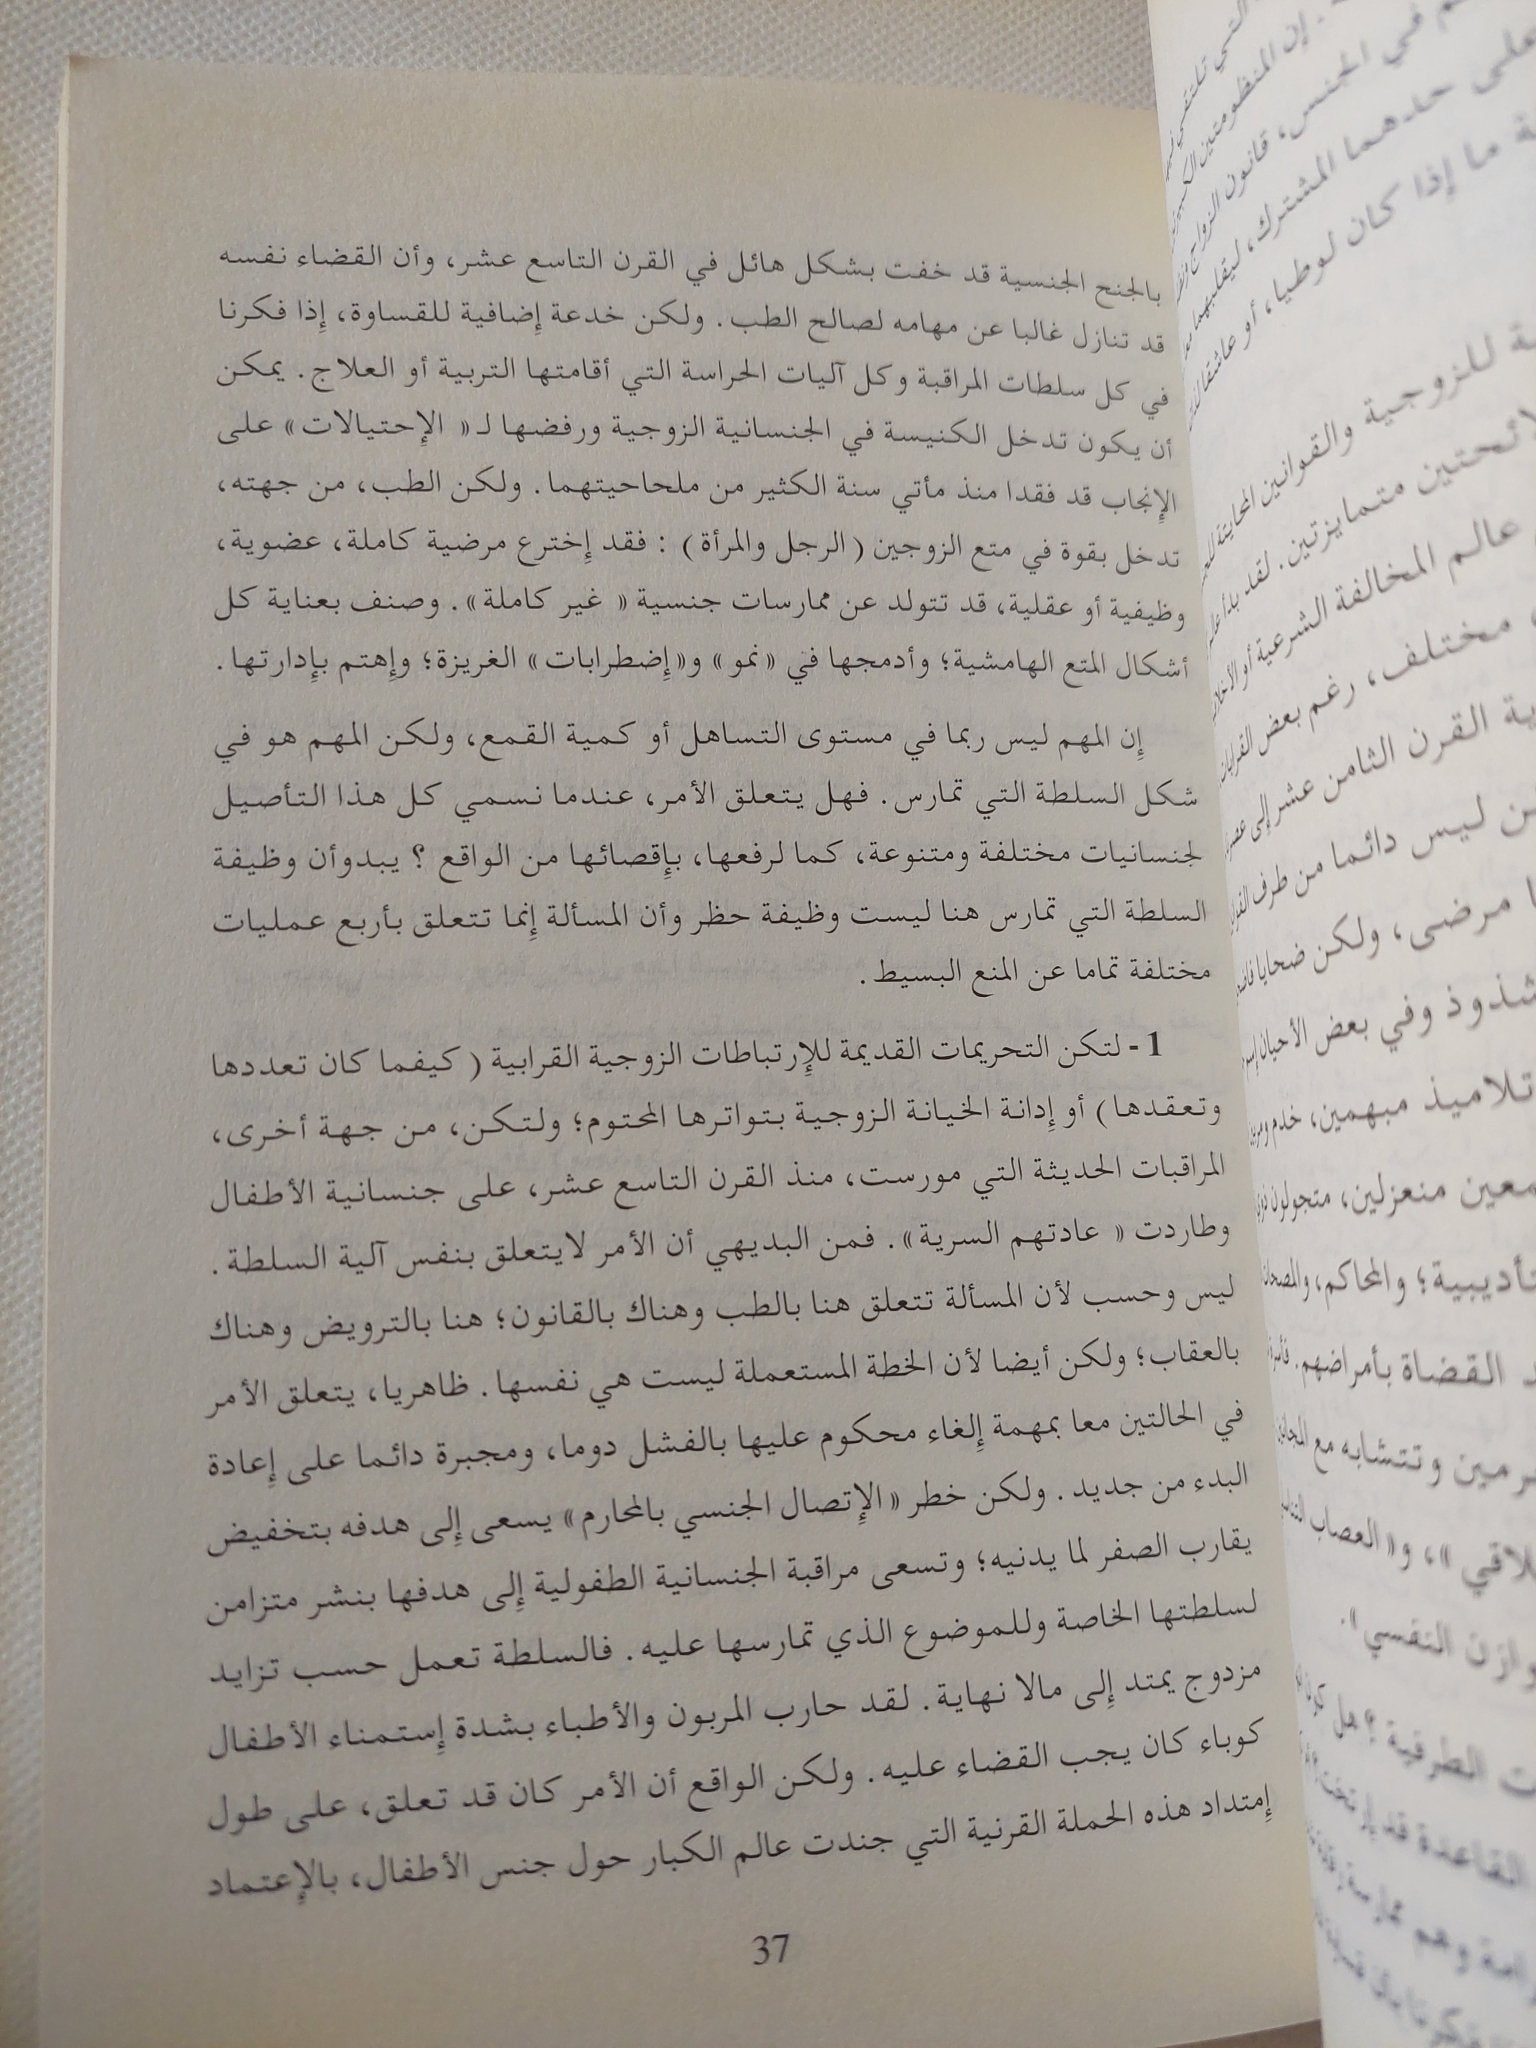 بالجنح الجنسية قد خفت بشكل هائل في القرن التاسع عشر، وأن القضاء نفسه
قد تنازل غالبا عن مهامه لصالح الطب. ولكن خدعة إضافية للقساوة، إذا فكرنا
في كل سلطات المراقبة وكل آليات الحراسة التي أقامتها التربية أو العلاج. يمكن
أن يكون تدخل الكنيسة في الجنسانية الزوجية ورفضها لـ « الإحتيالات» على
الإنجاب قد فقدا منذ مأتي سنة الكثير من ملحاحيتهما. ولكن الطب، من جهته،
تدخل بقوة في متع الزوجين (الرجل والمرأة) : فقد إخترع مرضية كاملة، عضوية،
وظيفية أو عقلية، قد تتولد عن ممارسات جنسية « غير كاملة». وصنف بعناية كل
أشكال المتع الهامشية؛ وأدمجها في «نمو» و«إضطرابات» الغريزة؛ وإهتم بإدارتها.
إن المهم ليس ربما في مستوى التساهل أو كمية القمع، ولكن المهم هو في
شكل السلطة التي تمارس. فهل يتعلق الأمر، عندما نسمي كل هذا التأصيل
لجنسانيات مختلفة ومتنوعة، كما لرفعها، بإقصائها من الواقع ؟ يبدوأن وظيفة
السلطة التي تمارس هنا ليست وظيفة حظر وأن المسألة إنما تتعلق بأربع عمليات
مختلفة تماما عن المنع البسيط.
1- لتكن التحريمات القديمة للإرتباطات الزوجية القرابية ( كيفما كان تعددها
وتعقدها) أو إدانة الخيانة الزوجية بتواترها المحتوم؛ ولتكن، من جهة أخرى،
المراقبات الحديثة التي مورست، منذ القرن التاسع عشر، على جنسانية الأطفال
وطاردت « عادتهم السرية». فمن البديهي أن الأمر لايتعلق بنفس آلية السلطة.
ليس وحسب لأن المسألة تتعلق هنا بالطب وهناك بالقانون؛ هنا بالترويض وهناك
بالعقاب؛ ولكن أيضا لأن الخطة المستعملة ليست هي نفسها. ظاهريا، يتعلق الأمر
في الحالتين معا بمهمة إلغاء محكوم عليها بالفشل دوما، ومجبرة دائما على إعادة
البدء من جديد. ولكن خطر «الإتصال الجنسي بالمحارم» يسعى إلى هدفه بتخفيض
يقارب الصفر لما يدنيه؛ وتسعى مراقبة الجنسانية الطفولية إلى هدفها بنشر متزامن
لسلطتها الخاصة وللموضوع الذي تمارسها عليه. فالسلطة تعمل حسب تزايد
مزدوج يمتد إلى مالا نهاية. لقد حارب المربون والأطباء بشدة إستمناء الأطفال
كوباء كان يجب القضاء عليه. ولكن الواقع أن الأمر كان قد تعلق، على طول
إمتداد هذه الحملة القرنية التي جندت عالم الكبار حول جنس الأطفال، بالإعتماد
37
إن المنظومتين
في الجنس، قانون الزواج
على حدهما المشترك، ليقلبهما
ما إذا كان لوطيا، أو
للزوجية والقوانين المحايثة
متمايزتين. لقد بدأ
عالم المخالفة الشرعية أو
مختلف، رغم بعض
القرن الثامن عشر إلى
ليس دائما من طرف
مرضى، ولكن ضحايا
وفي بعض الأحيان
تلاميذ مبهمين، خدم
منعزلين، متجولون
والمحاكم،
القضاة بأمراضهم.
وتتشابه مع
و« العصاب
النفسي».
الطرفية ؟ هل
القاعدة